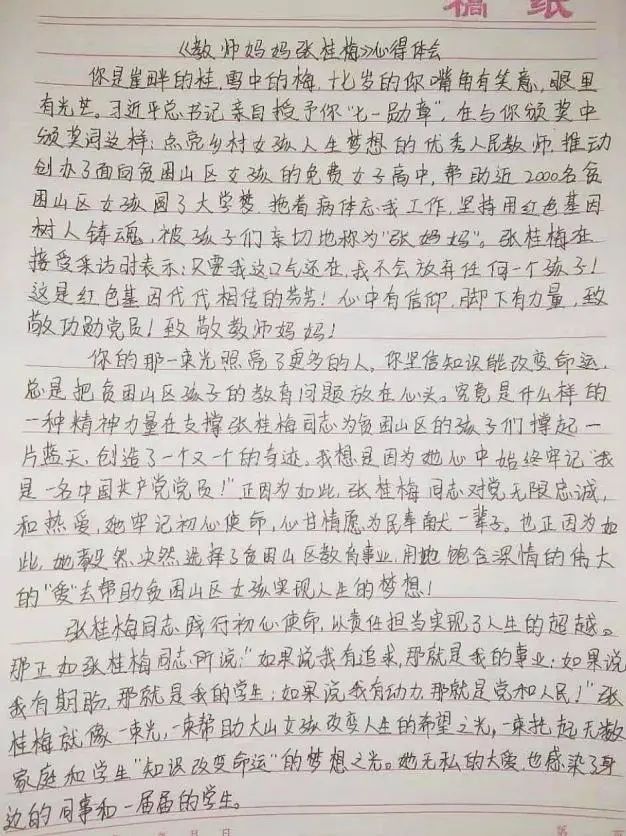 稿 纸
《教师妈妈张桂梅》心得体会
你是崖畔的桂,雪中的梅,十七岁的你嘴角有笑意,眼里
有光芒。习近平总书记亲自授予你“七一勋章”,在与你颁奖中
颁奖词这样:点亮乡村女孩人生梦想的优秀人民教师,推动
创办了面向贫困山区女孩的免费女子高中,帮助近2000名贫
困山区女孩圆了大学梦,拖着病体忘我工作,坚持用红色基因
树人铸魂,被孩子们亲切地称为“张妈妈”。张桂梅在
接受采访时表示:只要我这口气还在,我不会放弃任何一个孩子!
这是红色基因代代相传的芬芳!心中有信仰,脚下有力量,致
敬功勋党员!致敬教师妈妈!
你的那一束光照亮了更多的人。你坚信知识能改变命运,
总是把贫困山区孩子的教育问题放在心头。究竟是什么样的
一种精神力量在支撑张桂梅同志为贫困山区的孩子们撑起一
片蓝天,创造了一个又一个的奇迹。我想是因为她心中始终牢记“我
是一名中国共产党党员!”正因为如此,张桂梅同志对党无限忠诚,
和热爱,她牢记初心使命,心甘情愿为民奉献一辈子。也正因为如
此,她毅然决然选择了贫困山区教育事业,用她饱含深情的伟大
的“爱”去帮助贫困山区女孩实现人生的梦想!
张桂梅同志践行初心使命,以责任担当实现了人生的超越。
那正如张桂梅同志所说:“如果说我有追求,那就是我的事业;如果说
我有期盼,那就是我的学生;如果说我有动力,那就是党和人民!”张
桂梅就像一束光,一束帮助大山女孩改变人生的希望之光,一束托起无数
家庭和学生“知识改变命运”的梦想之光。她无私的大爱,也感染了身
边的同事和一届届的学生。